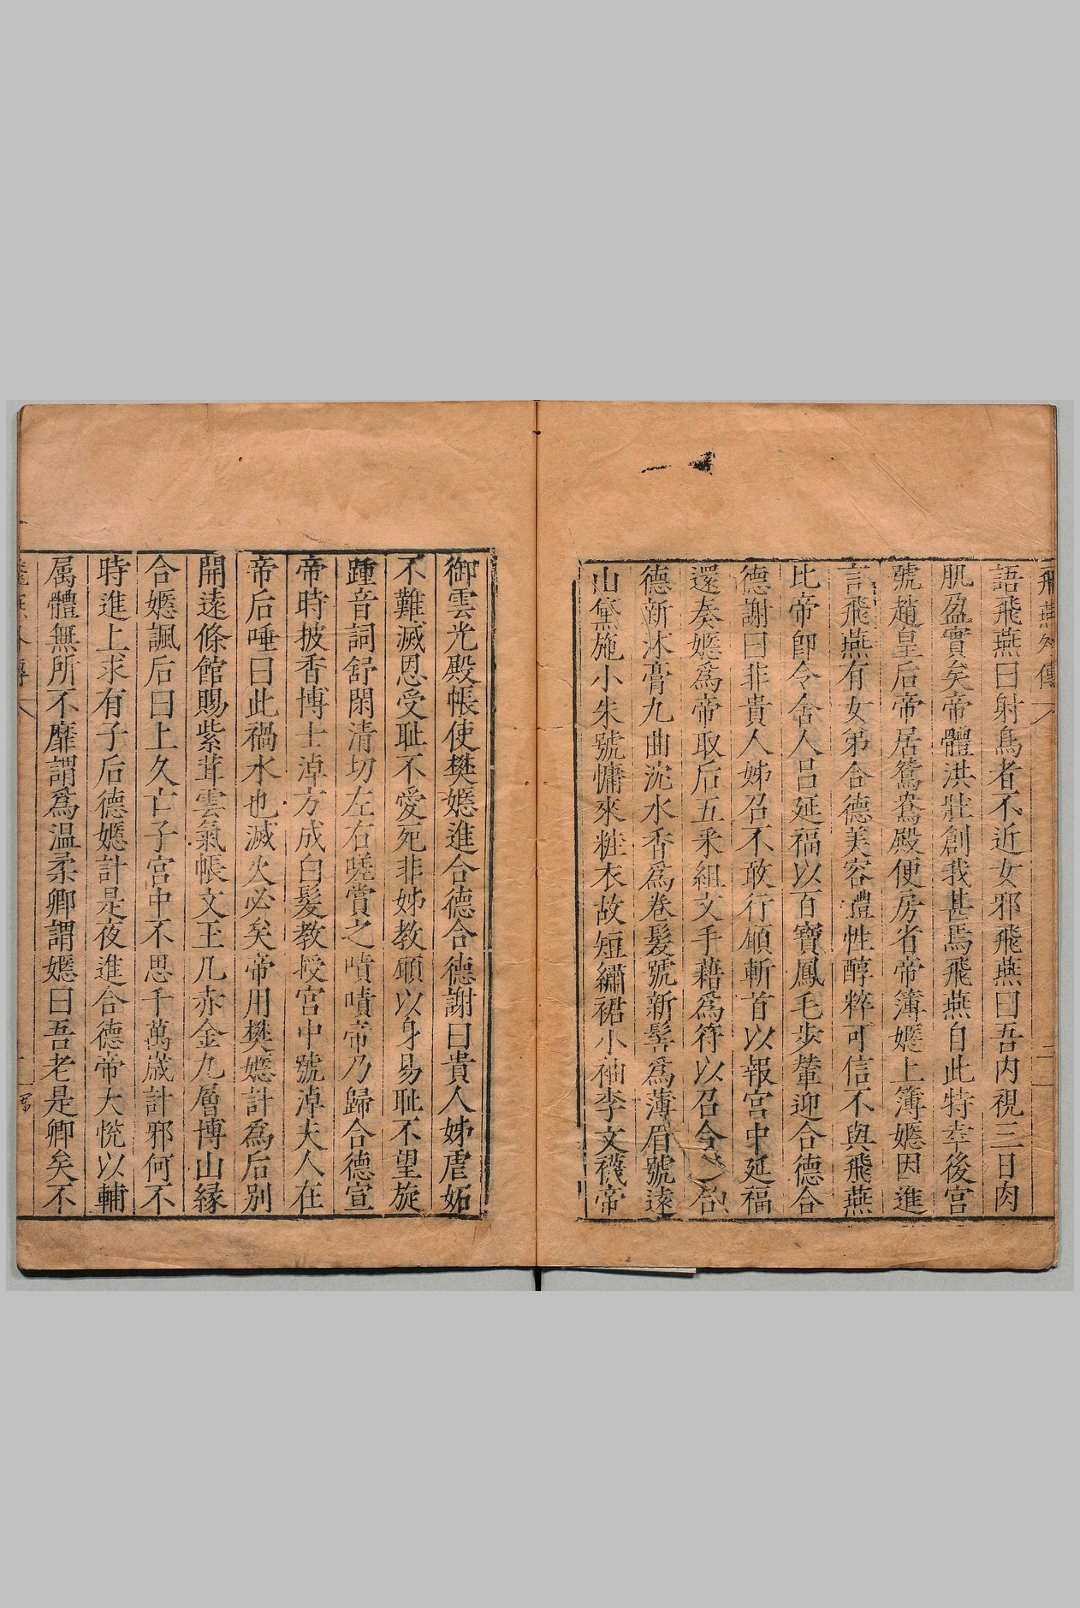 飛燕外傳
二
語飛燕曰射鳥者不近女邪飛燕曰吾内視三日肉
肌盈實矣帝體洪壯創我甚焉飛燕自此特幸後宮
號趙皇后帝居鴛鴦殿便房省帝簿嫕上簿嫕因進
言飛燕有女弟合德美容體性醇粹可信不與飛燕
比帝卽令舍人呂延福以百寶鳳毛步輦迎合德合
德謝曰非貴人姊召不敢行願斬首以報宮中延福
還奏嫕爲帝取后五采組文手藉爲符以召合德合
德新沐膏九曲沈水香爲卷髮號新髻爲薄眉號遠
山黛施小朱號慵來粧衣故短繡裙小袖李文襪帝
御雲光殿帳使樊嫕進合德合德謝曰貴人姊虐妬
不難滅恩受耻不愛死非姊教願以身易耻不望旋
踵音詞舒閑清切左右嗟賞之嘖嘖帝乃歸合德宣
帝時披香博士淖方成白髮教授宮中號淖夫人在
帝后唾曰此禍水也滅火必矣帝用樊嫕計爲后別
開遠條館賜紫茸雲氣帳文玉几赤金九層博山緣
合嫕諷后曰上久亡子宮中不思千萬歲計邪何不
時進上求有子后德嫕計是夜進合德帝大悅以輔
屬體無所不靡謂爲温柔鄉謂嫕曰吾老是鄉矣不